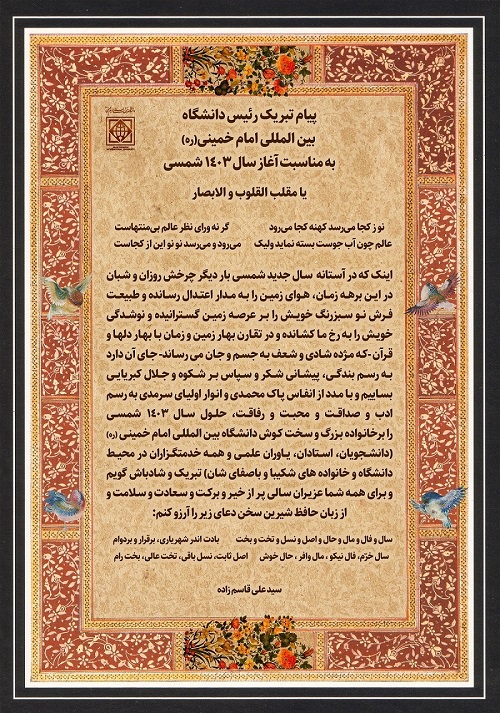 پیام تبریک رئیس دانشگاه
بین المللی امام خمینی(ره)
به مناسبت آغاز سال ۱۴۰۳ شمسی
یا مقلب القلوب و الابصار
نو ز کجا می‌رسد کهنه کجا می‌رود گر نه ورای نظر عالم بی‌منتهاست
عالم چون آب جوست بسته نماید ولیک می‌رود و می‌رسد نو نو این از کجاست
اینک که در آستانه سال جدید شمسی بار دیگر چرخش روزان و شبان
در این برهه زمان، هوای زمین را به مدار اعتدال رسانده و طبیعت
فرش نو سبزرنگ خویش را بر عرصه زمین گسترانیده و نوشدگی
خویش را به رخ ما کشانده و در تقارن بهار زمین و زمان با بهار دلها و
قرآن -که مژده شادی و شعف به جسم و جان می رساند- جای آن دارد
به رسم بندگی، پیشانی شکر و سپاس بر شکوه و جلال کبریایی
بساییم و با مدد از انفاس پاک محمدی و انوار اولیای سرمدی به رسم
ادب و صداقت و محبت و رفاقت، حلول سال ۱۴۰۳ شمسی
را برخانواده بزرگ و سخت کوش دانشگاه بین المللی امام خمینی (ره)
(دانشجویان، استادان، یاوران علمی و همه خدمتگزاران در محیط
دانشگاه و خانواده های شکیبا و باصفای شان) تبریک و شادباش گویم
و برای همه شما عزیران سالی پر از خیر و برکت و سعادت و سلامت و
از زبان حافظ شیرین سخن دعای زیر را آرزو کنم:
سال و فال و مال و حال و اصل و نسل و تخت و بخت بادت اندر شهریاری، برقرار و بردوام
سال خرّم، فال نیکو، مال وافر، حال خوش اصل ثابت، نسل باقی، تخت عالی، بخت رام
سیدعلی قاسم زاده